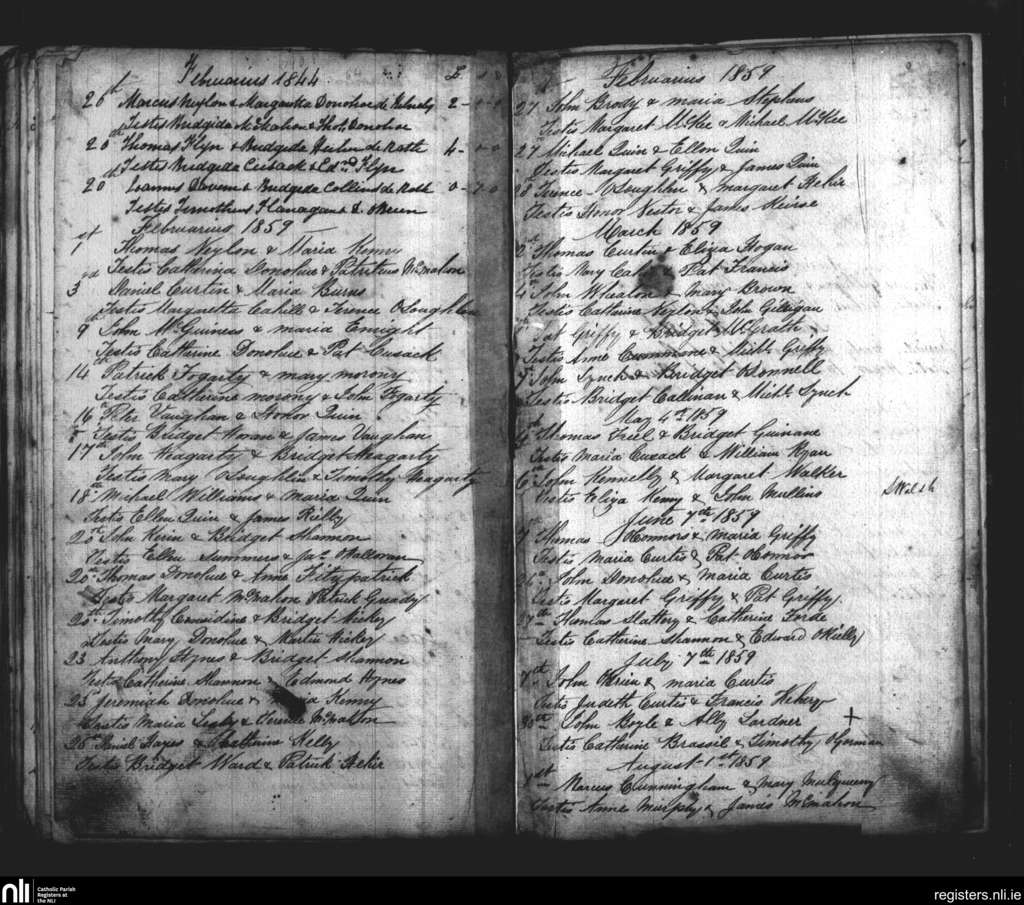 Februarius 1844 £
20th Marcus Neylon & Margarita Donohoe de 2 - 0 - 0
Testis Bridgida McMahon & Thos. Donohoe
20th Thomas Flyn & Bridgida de Rath 4 - 0 0
Testis Bridgida Cusack & Edmd Flyn
20th Joannis & Bridgida Collins de Rath 0 - 0
Testis Timotheus Flanagan & OBrien
Februarius 1859
1st Thomas Neylon & Maria Kenny
Testis Catherina Donohue & Patritius McMahon
3rd Daniel Curtin & Maria Burns
Testis Margaretta Cahill & Terence OLoughlen
9th John McGuiness & maria Enright
Testis Catherine Donohue & Pat Cusack
14th Patrick Fogarty & mary morony
Testis Catherine morony & John Fogarty
16 Peter Vaughan & Honor Quin
Testis Bridget & James Vaughan
17th John Heagarty & Bridget Heagarty
Testis Mary OLoughlin & Timothy Heagarty
18th Michael Williams & Maria Quin
Testis Ellen Quin & James Rielly
20th John Kerin & Bridget Shannon
Testis Ellen Summers & Jas OHalloran
20th Thomas Donohue & Anne Fitzpatrick
Testis Margaret McMahon Patrick Gready
20th Timothy Considine & Bridget Hickey
Testis Mary Donohue & Martin Hickey
23 Anthony Hynes & Bridget Shannon
Testis Catherine Shannon & Edmond Hynes
25th Jeremiah Donohue & Maria Kenny
Testis Maria & Terence McMahon
26th Daniel Hayes & Catherine Kelly
Testis Bridget Ward & Patrick Hehir
Februarius 1859
27 John Brody & maria Stephens
Testis Margaret McKee & Michael McKee
27 Michael Quin & Ellen Quin
Testis Margaret Griffy & James Quin
28 Terence OLoughlen & margaret Hehir
Testis Honor Nestor & James
March 1859
2nd Thomas Curtin & Eliza Hogan
Testis Mary & Pat Francis
4 John Whealon & Mary Brown
Testis Catherine Neylon & John Gilligan
Pat Griffy & Bridget McGrath
Testis Anne Cummane & Michl Griffy
7th John Lynch & Bridget ODonnell
Testis Bridget Callinan & Michl Lynch
May 4th 1859
4th Thomas Friel & Bridget Guinane
Testis Maria Cusack & William Ryan
6th John Kennelly & Margaret Walker
Testis Eliza Kenny & John Mullins
Walsh
June 7th 1859
7 Thomas OConnors & Maria Griffy
Testis Maria Curtis & Pat OConnor
26th John Donohue & maria Curtis
Testis Margaret Griffy & Pat Griffy
27th Thomas Slattery & Catherine Forde
Testis Catherine Shannon & Edward ORielly
July 7th 1859
7th John OBrien & maria Curtis
Testis Judeth Curtis & Francis Hehery
30th John Boyle & Ally Lardner +
Testis Catherine Brassil & Timothy OGorman
August 1st 1859
1st Marcus Cunningham & Mary Mulqueeny
Testis Anne Murphy & James McMahon
nli
Catholic Parish
Registers at
the NLI
registers.nli.ie